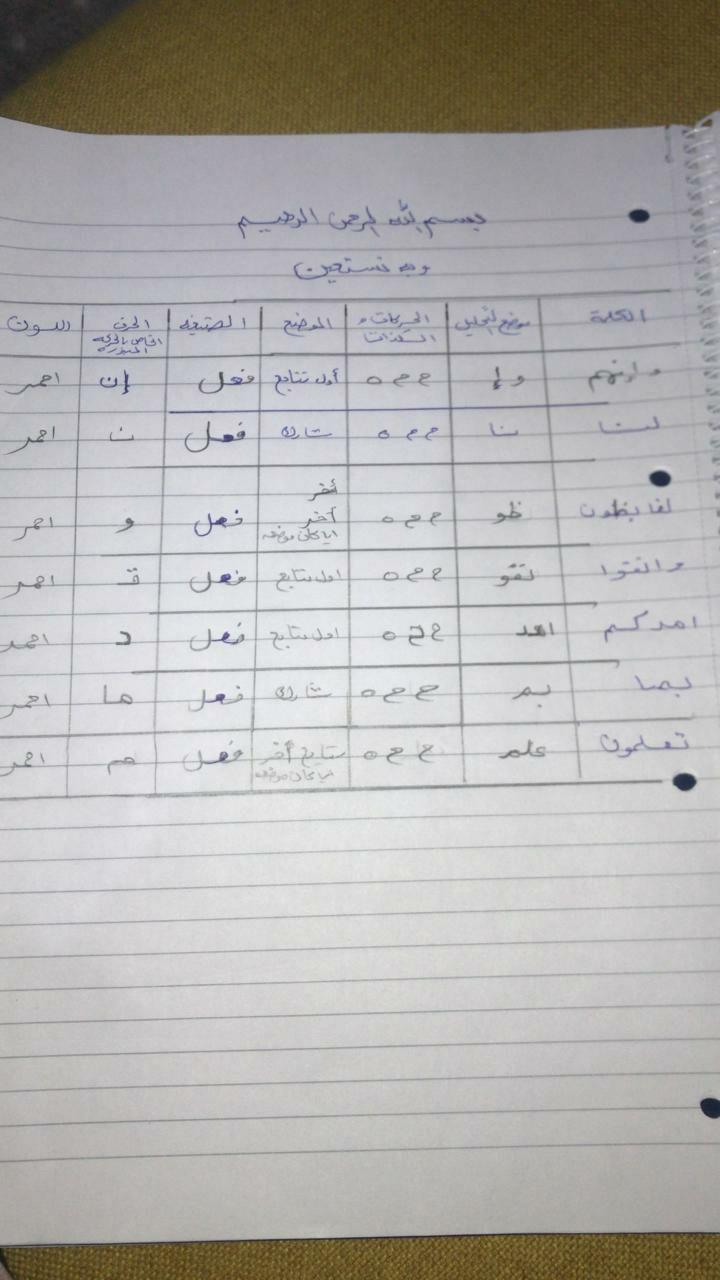 بسم الله الرحمن الرحيم
وبه نستعين
الكلمة موضع التحليل الحركات و السكنات الموضع الصيغه الحرف الخاص بالحركة اللون
وإنهم وإ ح ح ه أول تتابع فعل إن احمر
لنا نا ح ح ه شارك فعل ن احمر
أخر
لغائظون ظو ح ح ه أخر فعل و احمر
واتقوا تقو ح ح ه اول تتابع فعل قـ احمر
امدكم امد ح ح ه اول تتابع فعل د احمر
بما بم ح ح ه شارك فعل ما احمر
تعلمون علم ح ح ه تتابع أخر فعل م احمر